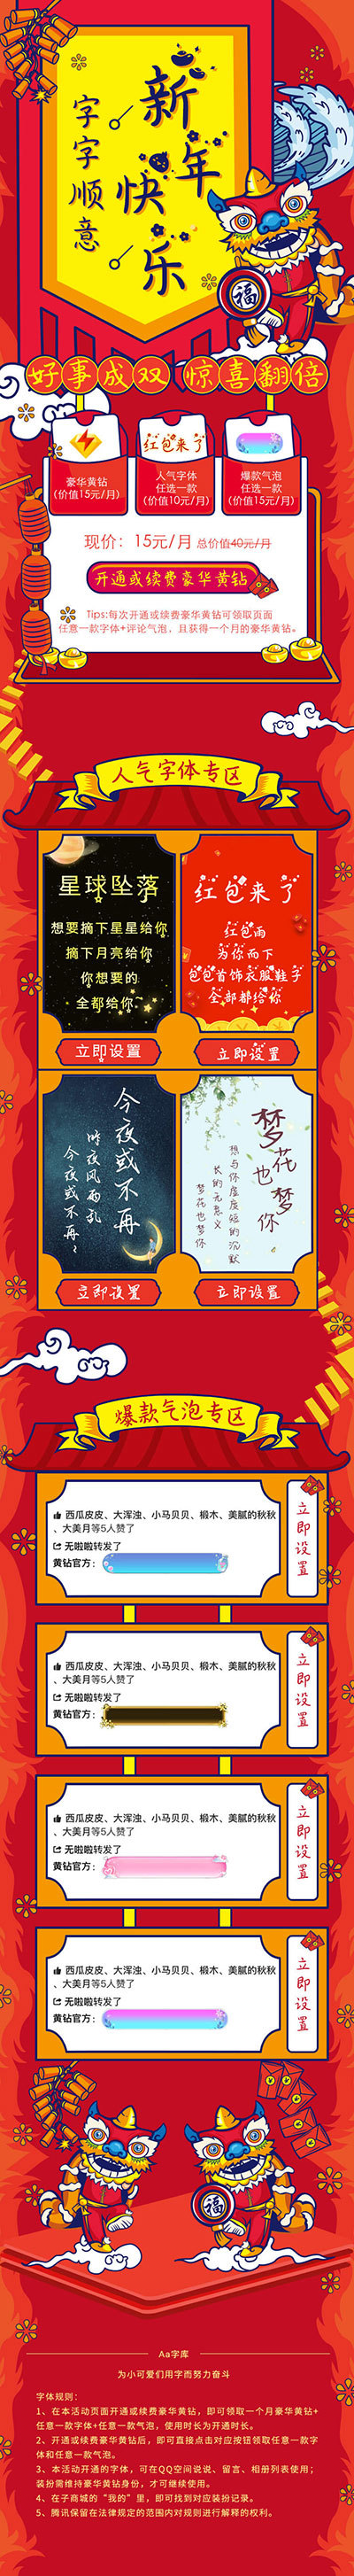 新年快乐
字字顺意
福
好事成双 惊喜翻倍
红包来了
豪华黄钻
(价值15元/月)
人气字体
任选一款
(价值10元/月)
爆款气泡
任选一款
(价值15元/月)
现价：15元/月 总价值40元/月
开通或续费豪华黄钻
Tips:每次开通或续费豪华黄钻可领取页面
任意一款字体+评论气泡，且获得一个月的豪华黄钻。
人气字体专区
星球坠落
想要摘下星星给你
摘下月亮给你
你想要的
全都给你
立即设置
红包来了
红包雨
为你而下
包包首饰衣服鞋子
全部都给你
立即设置
今夜或不再
昨夜风雨乱
今夜或不再~
立即设置
梦花也梦你
想与你虚度短的沉默
长的无意义
梦花也梦你
立即设置
爆款气泡专区
西瓜皮皮、大浑浊、小马贝贝、椴木、美腻的秋秋
、大美月等5人赞了
无啦啦转发了
黄钻官方：
立即设置
西瓜皮皮、大浑浊、小马贝贝、椴木、美腻的秋秋
、大美月等5人赞了
无啦啦转发了
黄钻官方：
立即设置
西瓜皮皮、大浑浊、小马贝贝、椴木、美腻的秋秋
、大美月等5人赞了
无啦啦转发了
黄钻官方：
立即设置
西瓜皮皮、大浑浊、小马贝贝、椴木、美腻的秋秋
、大美月等5人赞了
无啦啦转发了
黄钻官方：
立即设置
福
Aa字库
为小可爱们用字而努力奋斗
字体规则：
1、在本活动页面开通或续费豪华黄钻，即可领取一个月豪华黄钻+
任意一款字体+任意一款气泡，使用时长为开通时长。
2、开通或续费豪华黄钻后，即可直接点击对应按钮领取任意一款字
体和任意一款气泡。
3、本活动开通的字体，可在QQ空间说说、留言、相册列表使用；
装扮需维持豪华黄钻身份，才可继续使用。
4、在子商城的“我的”里，即可找到对应装扮记录。
5、腾讯保留在法律规定的范围内对规则进行解释的权利。